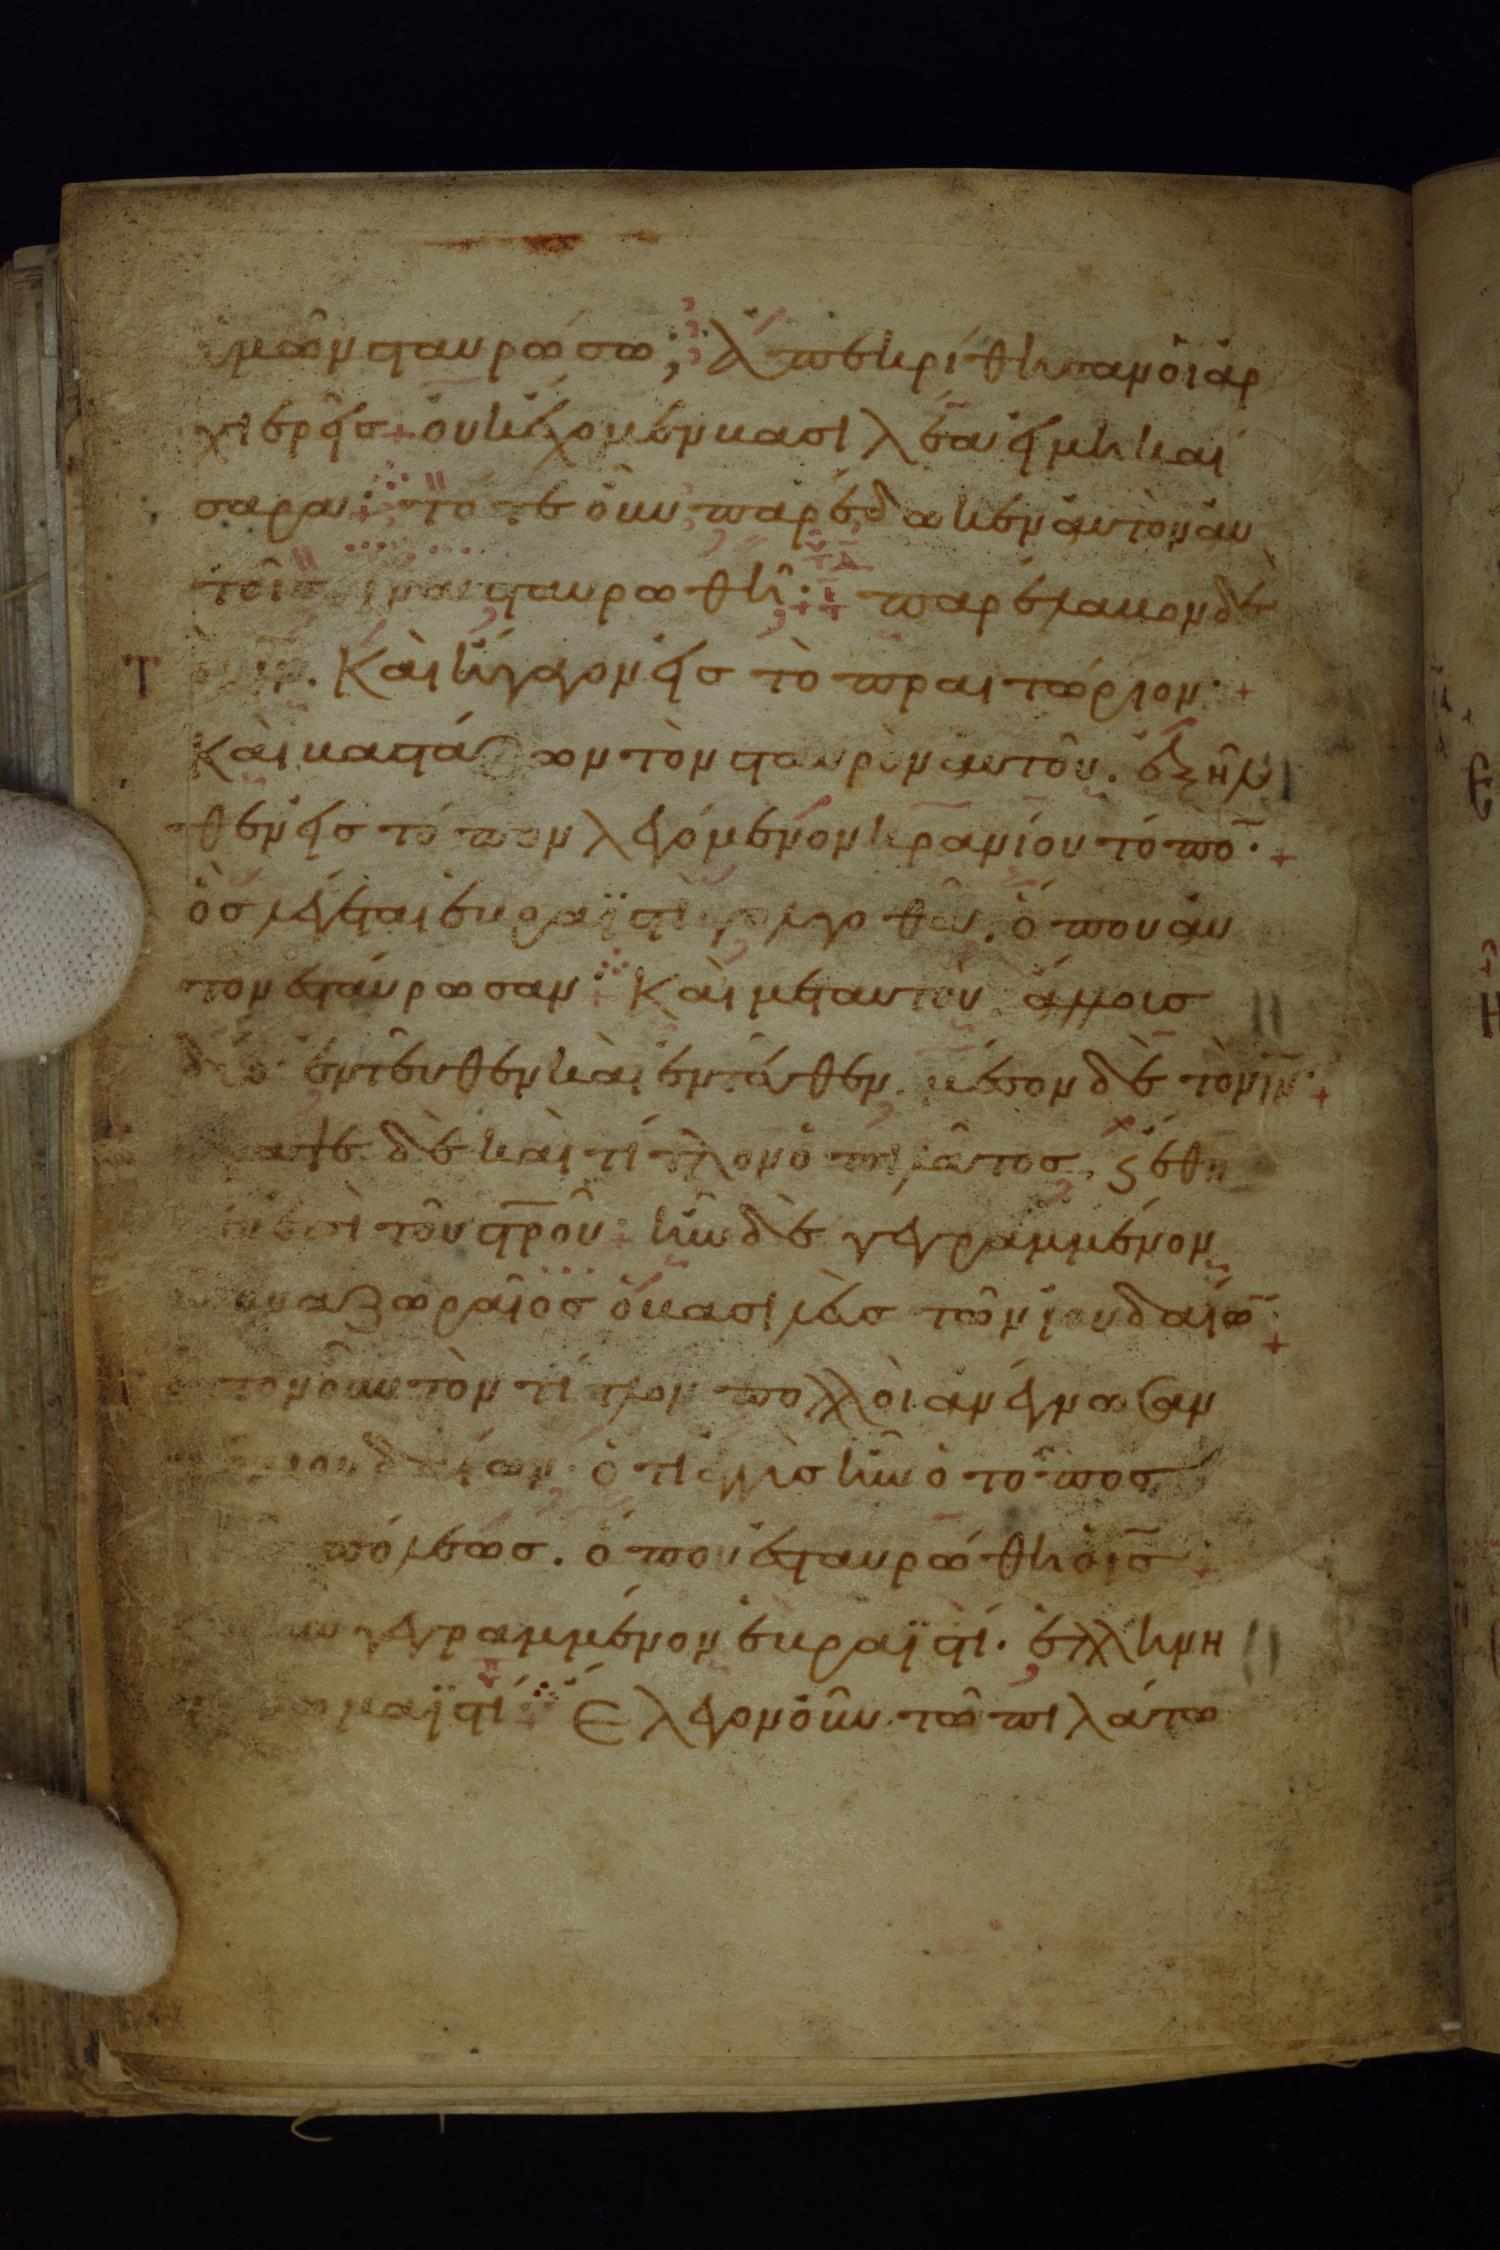 ὑμῶν σταυρώσω; Ἀπεκρίθησαν οἱ ἀρ
χιερεῖς + οὐκ ἔχομεν βασιλέα εἰ μὴ Και
σαρα· τότε οὖν παρέδωκεν αὐτὸν αὐ
τοῖς ἵνα σταυρωθῆ· παρέλαβον δὲ
Τὸν ιν. Καὶ ἤγαγον εἰς τὸ πραιτώριον· +
Καὶ βαστάζων τὸν σταυρὸν αὐτοῦ. ἐξῆλ
θεν εἰς τόπον λεγόμενον κρανίου τόπο̅· +
ὃς λέγεται ἑβραϊστὶ γολγοθᾶ. ὅπου αὐ
τὸν ἐσταύρωσαν· Καὶ μετ αὐτοῦ ἄλλους
δύο ἐντεῦθεν καὶ ἐντεῦθεν. μέσον δὲ τὸν ιν· +
δὲ καὶ τίτλον ὁ πιλάτος, ϛ ἔθη
ἐπὶ τοῦ στρου· ἦν δὲ γεγραμμένον
ναζωραῖος ὁ βασιλεὺς τῶν ἰουδαίω̅· +
τον οὖν τὸν τίτλον πολλοὶ ἀνέγνωσαν
ἰουδαίων· ὅτι ἐγγὺς ἦν ὁ τόπος
πόλεως. ὅπου ἐσταυρώθη ὁ ις +
γεγραμμένον ἑβραϊστί. ἑλληνη
ωμαϊστί· Ἔλεγον οὖν τῶ πιλάτω